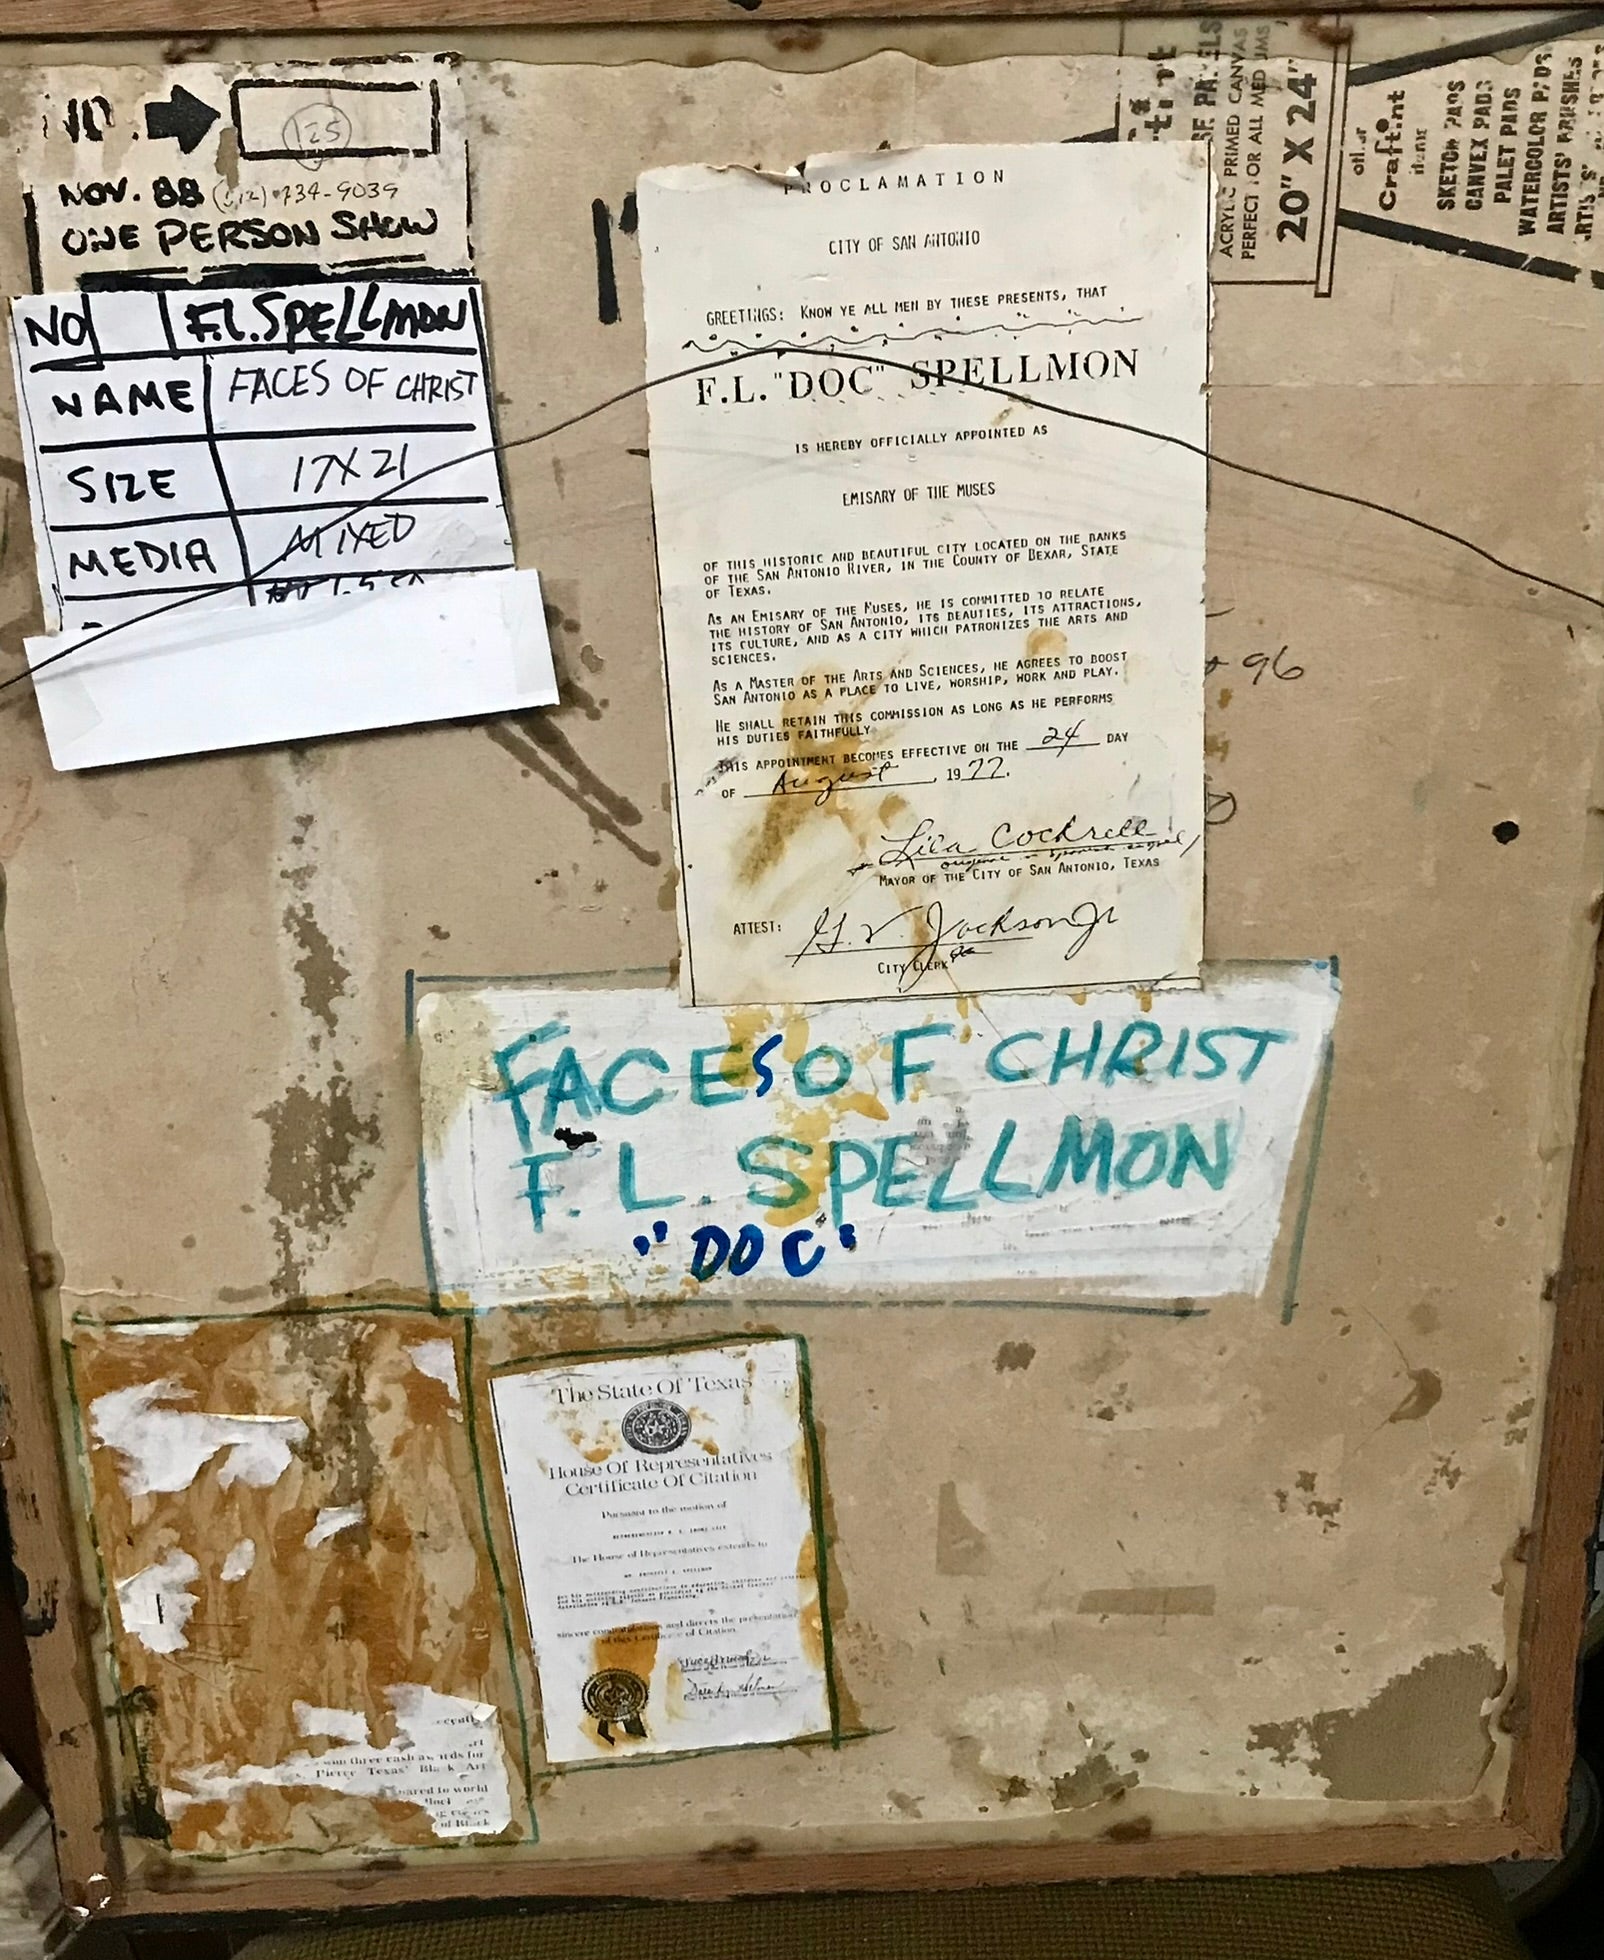 NO.
125
NOV. 88 (512) 734-9039
ONE PERSON SHOW
NO F.L. SPELLMON
NAME FACES OF CHRIST
SIZE 17X21
MEDIA MIXED
PROCLAMATION
CITY OF SAN ANTONIO
GREETINGS: KNOW YE ALL MEN BY THESE PRESENTS, THAT
F.L. "DOC" SPELLMON
IS HEREBY OFFICIALLY APPOINTED AS
EMISARY OF THE MUSES
OF THIS HISTORIC AND BEAUTIFUL CITY LOCATED ON THE BANKS
OF THE SAN ANTONIO RIVER, IN THE COUNTY OF BEXAR, STATE
OF TEXAS.
AS AN EMISARY OF THE MUSES, HE IS COMMITTED TO RELATE
THE HISTORY OF SAN ANTONIO, ITS BEAUTIES, ITS ATTRACTIONS,
ITS CULTURE, AND AS A CITY WHICH PATRONIZES THE ARTS AND
SCIENCES.
AS A MASTER OF THE ARTS AND SCIENCES, HE AGREES TO BOOST
SAN ANTONIO AS A PLACE TO LIVE, WORSHIP, WORK AND PLAY.
HE SHALL RETAIN THIS COMMISSION AS LONG AS HE PERFORMS
HIS DUTIES FAITHFULLY
THIS APPOINTMENT BECOMES EFFECTIVE ON THE 24 DAY
OF August, 1977.
Lila Cockrell
MAYOR OF THE CITY OF SAN ANTONIO, TEXAS
ATTEST: G. V. Jackson Jr
CITY CLERK
ACRYLIC PRIMED CANVAS
PERFECT FOR ALL MEDIUMS
20" X 24"
Craftint
SKETCH PADS
CANVEX PADS
PALET PADS
WATERCOLOR PADS
ARTISTS' BRUSHES
96
FACES OF CHRIST
F. L. SPELLMON
"DOC"
The State Of Texas
House Of Representatives
Certificate Of Citation
Pursuant to the motion of
The House of Representatives extends to
sincere congratulations and directs the presentation
of this Certificate of Citation.
three cash awards for
Pierce Texas' Black Art
to world
of Black